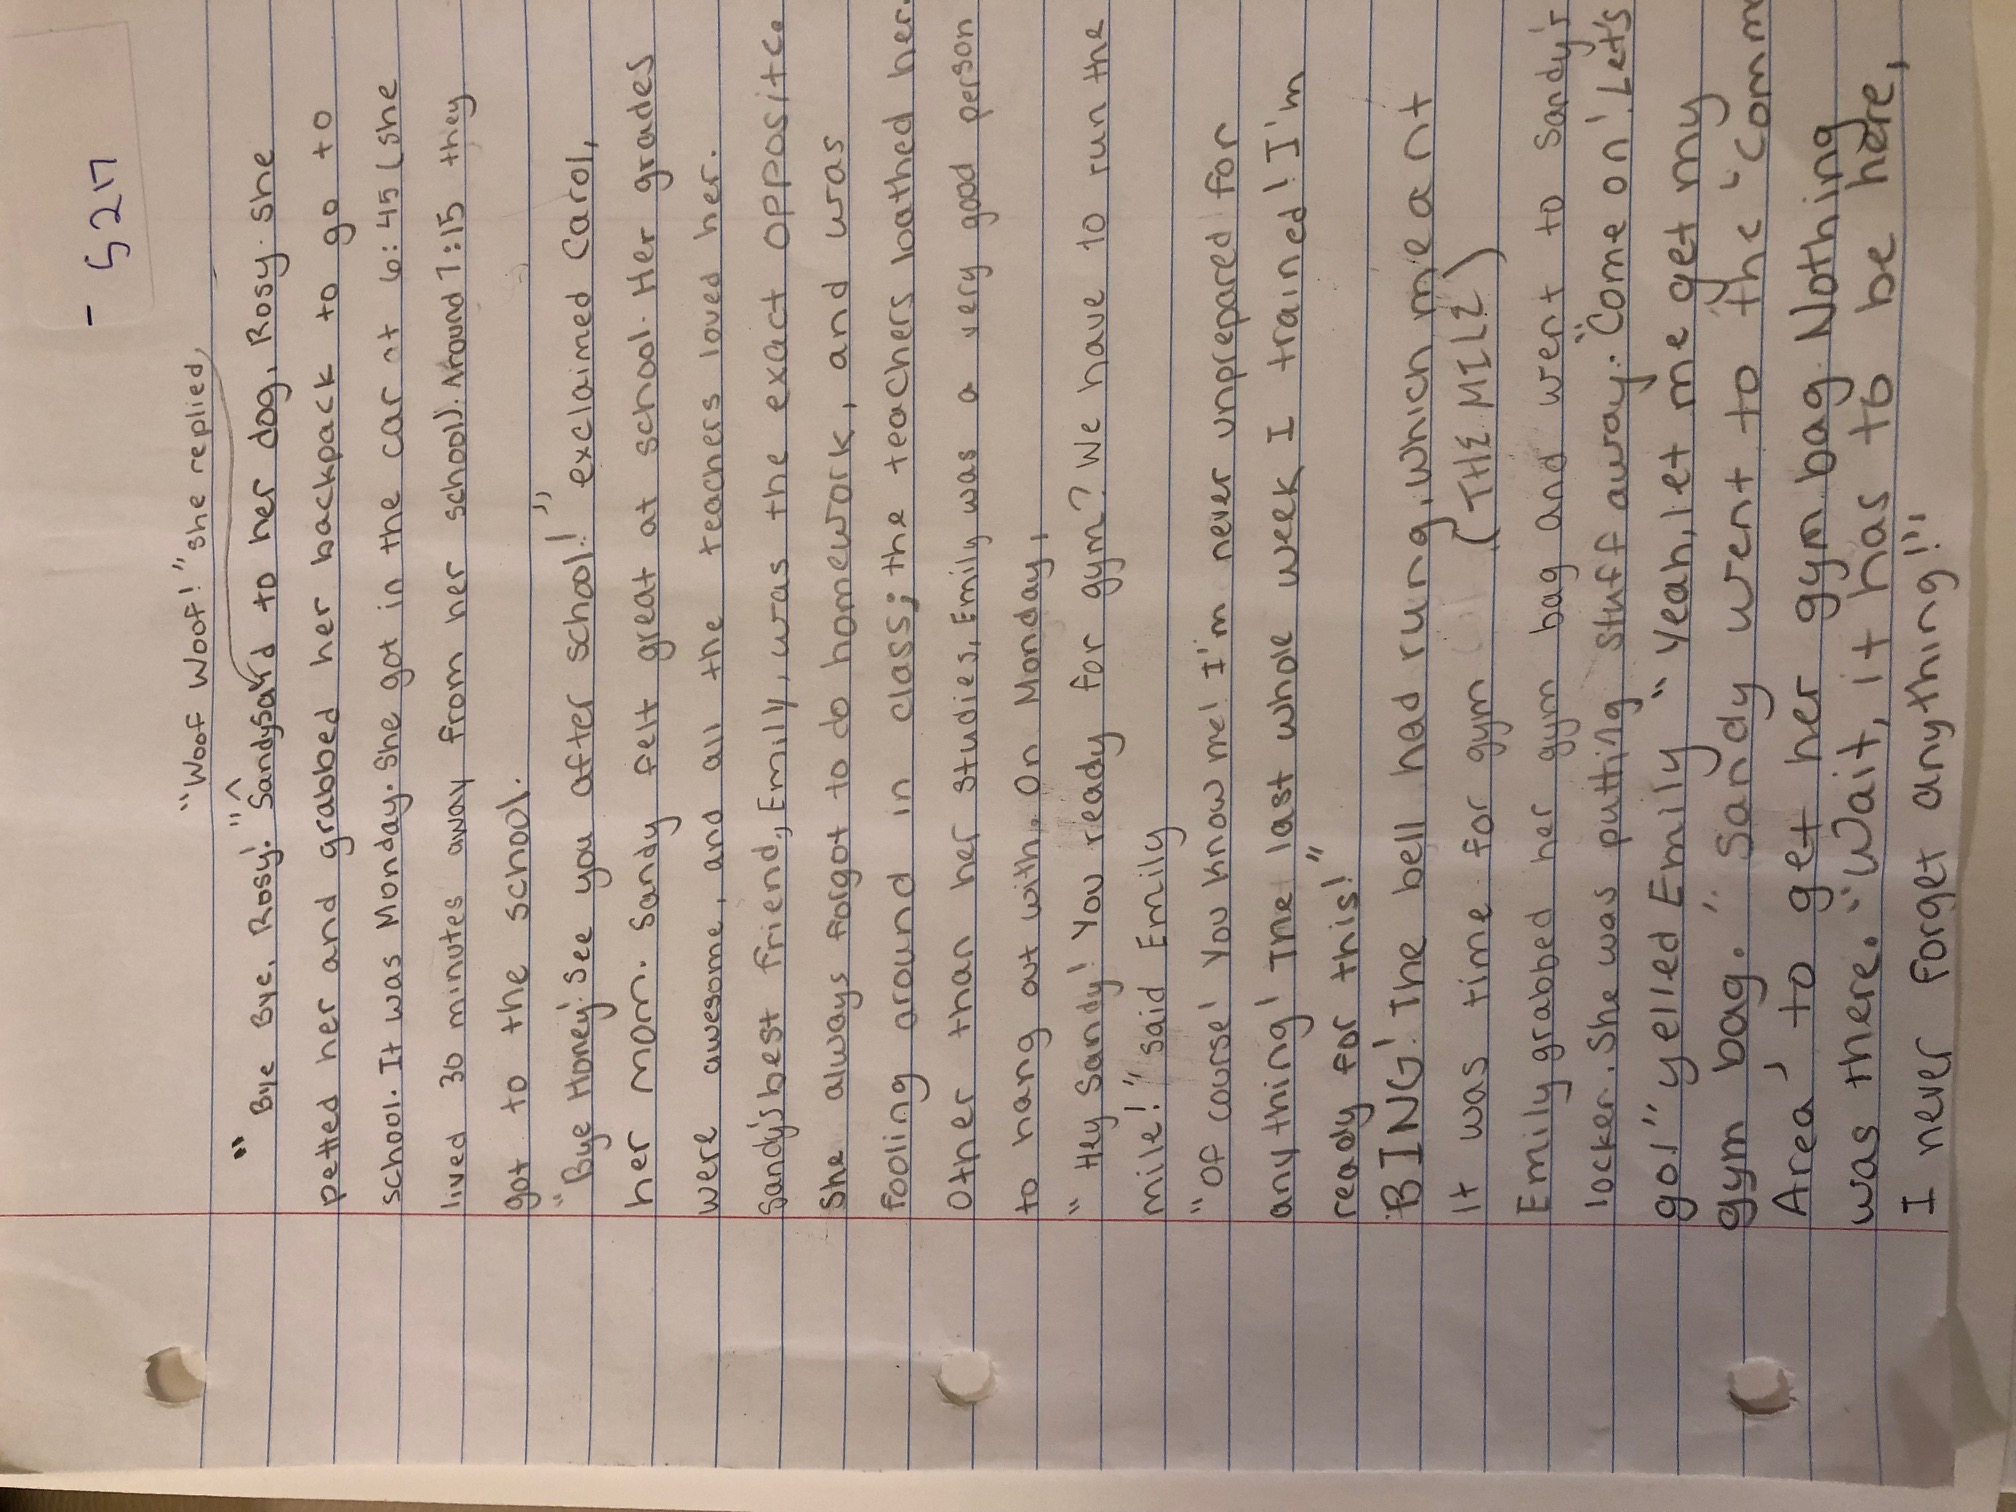 - 5217
"Woof Woof!" she replied,
" Bye Bye, Rosy!" ^ Sandy said to her dog, Rosy. She
petted her and grabbed her backpack to go to
school. It was Monday. She got in the car at 6:45 (she
lived 30 minutes away from her school). Around 7:15 they
got to the school.
"Bye Honey! See you after school!" exclaimed Carol,
her mom. Sandy felt great at school. Her grades
were awesome, and all the teachers loved her.
Sandy's best friend, Emily, was the exact opposite.
She always forgot to do homework, and was
fooling around in class; the teachers loathed her.
Other than her studies, Emily was a very good person
to hang out with. On Monday,
" Hey Sandy! You ready for gym? We have to run the
mile!" said Emily
"Of course! You know me! I'm never unprepared for
anything! The last whole week I trained! I'm
ready for this!"
BING! The bell had rung, which meant
it was time for gym (THE MILE)
Emily grabbed her gym bag and went to Sandy's
locker. She was putting stuff away. "Come on! Let's
go!" yelled Emily "Yeah, let me get my
gym bag." Sandy went to the 'Comm
Area' to get her gym bag. Nothing
was there. "Wait, it has to be here,
I never forget anything!"